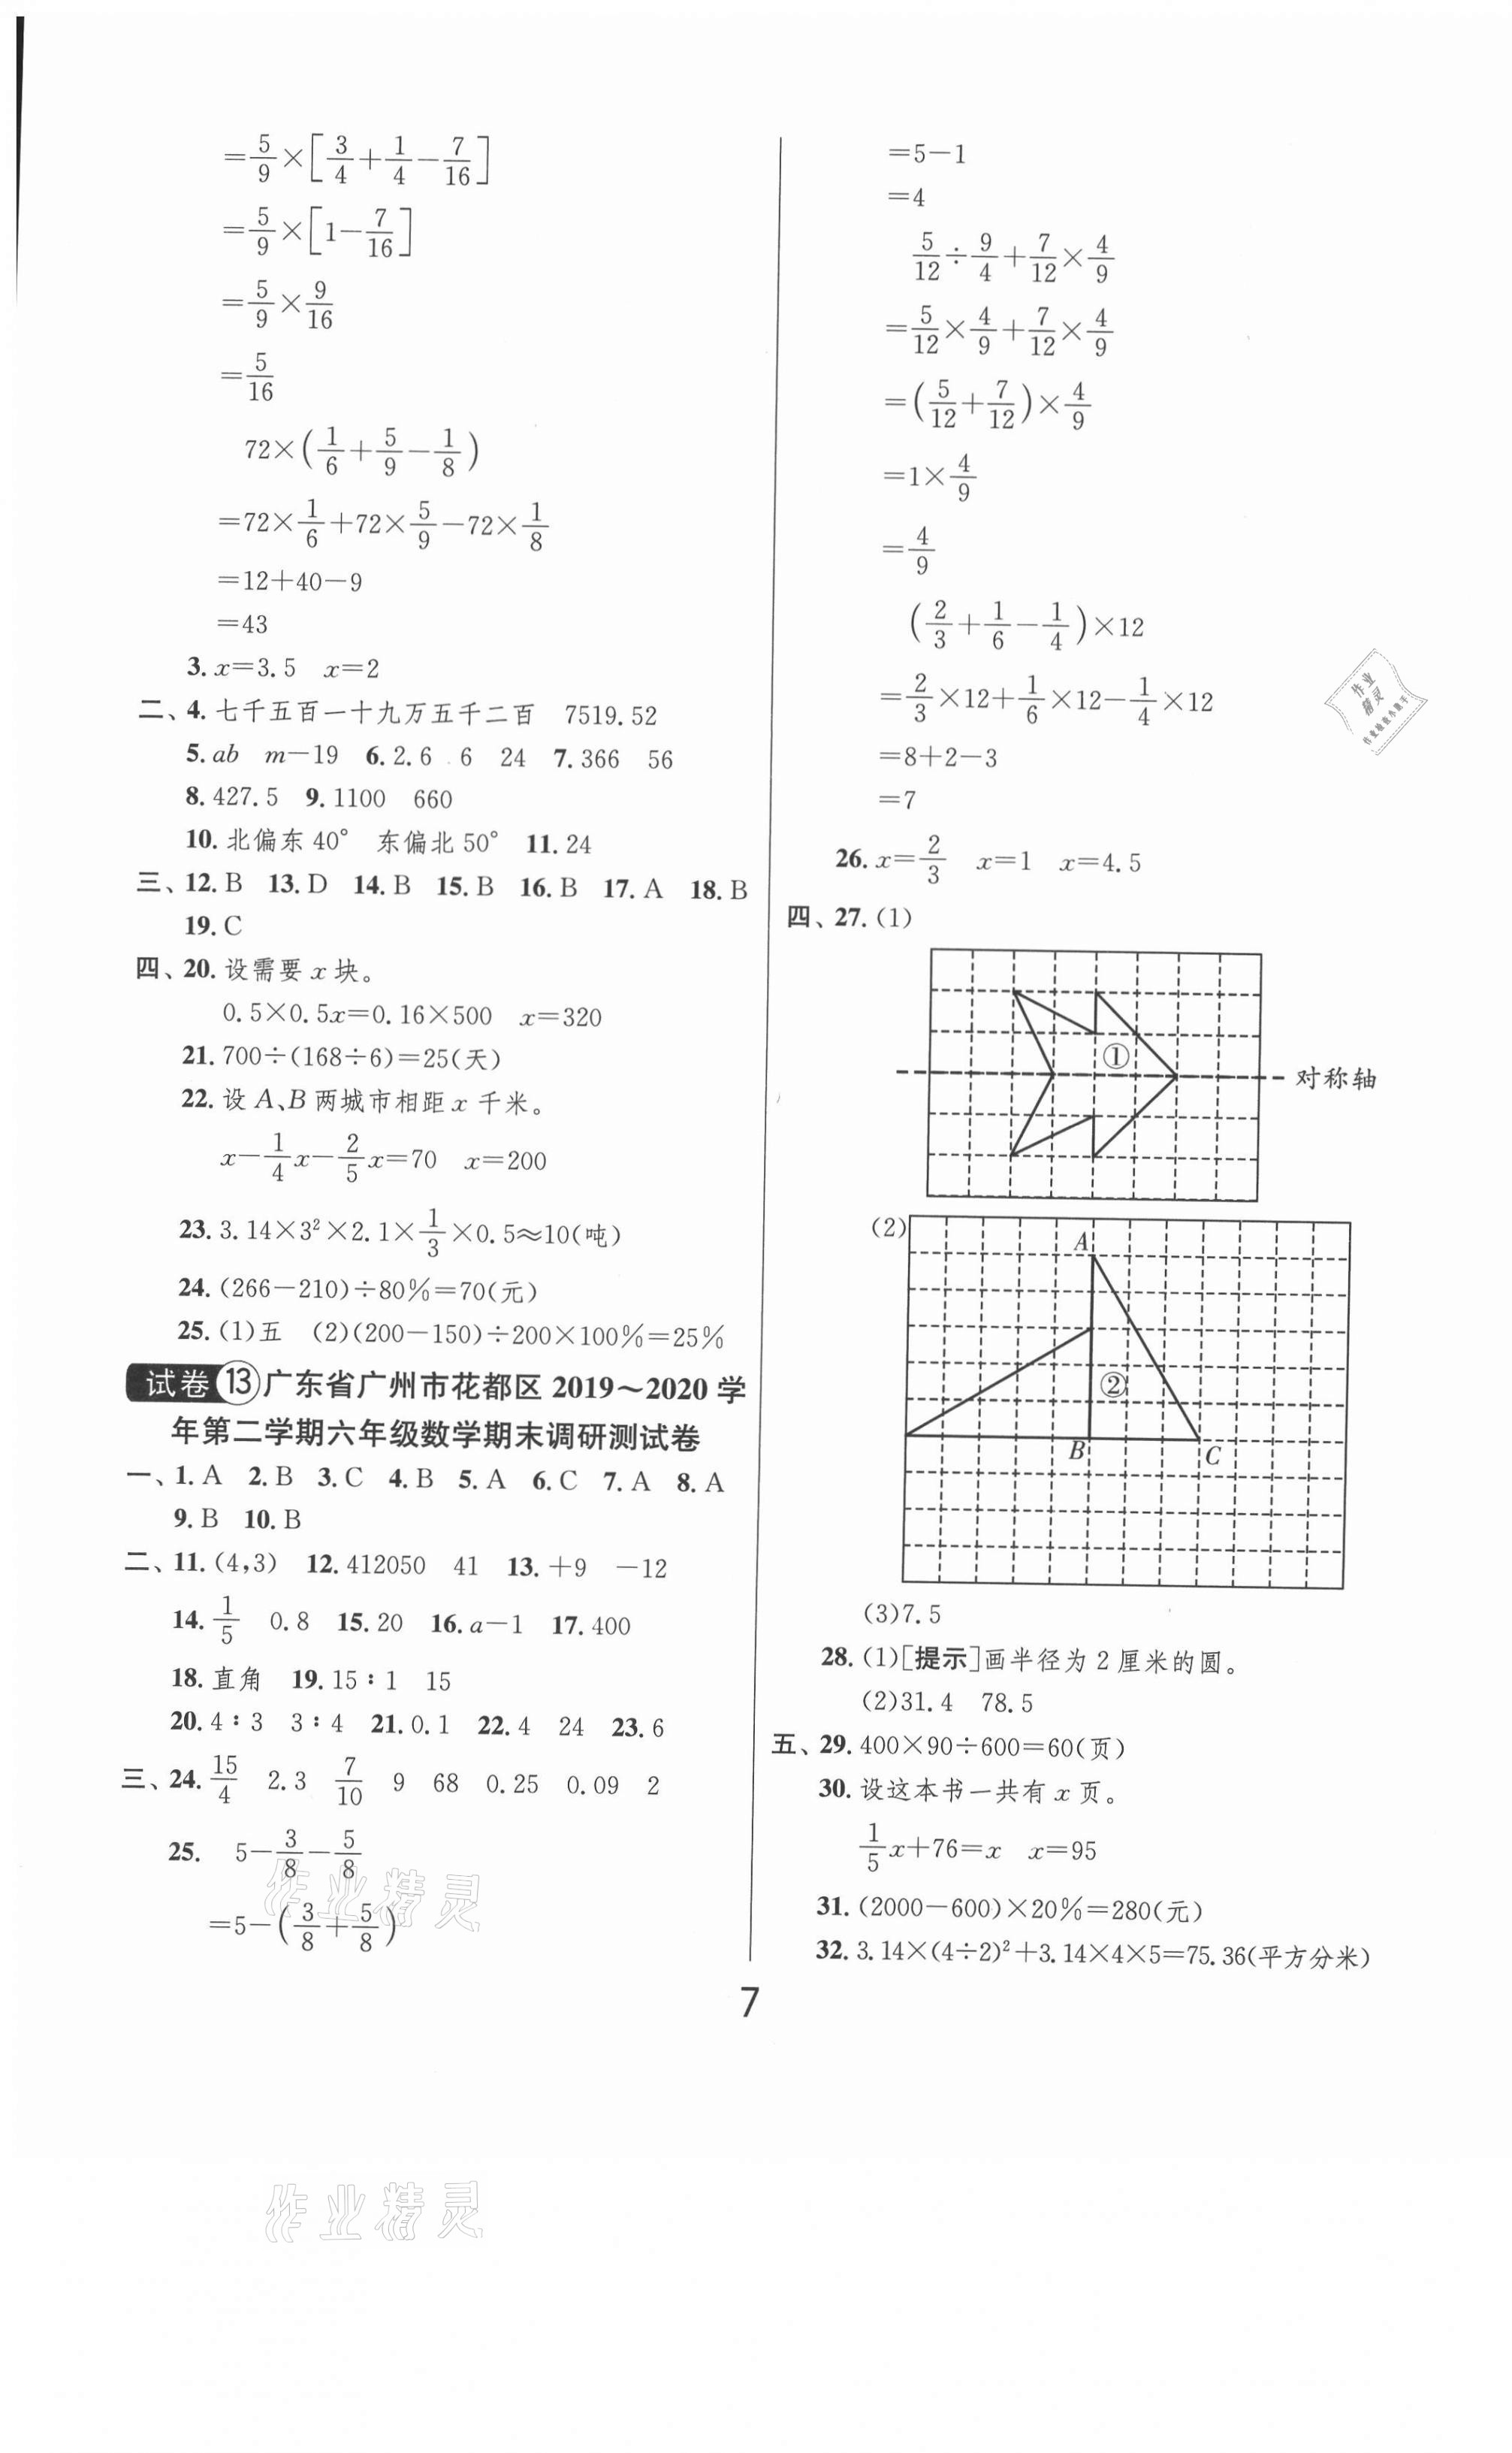 =5/9×[3/4+1/4-7/16]
=5/9×[1-7/16]
=5/9×9/16
=5/16
72×(1/6+5/9-1/8)
=72×1/6+72×5/9-72×1/8
=12+40-9
=43
3. x=3.5 x=2
二、4. 七千五百一十九万五千二百 7519.52
5. ab m-19 6. 2.6 6 24 7. 366 56
8. 427.5 9. 1100 660
10. 北偏东 40° 东偏北 50° 11. 24
三、12. B 13. D 14. B 15. B 16. B 17. A 18. B
19. C
四、20. 设需要 x 块。
0.5×0.5x=0.16×500 x=320
21. 700÷(168÷6)=25(天)
22. 设 A、B 两城市相距 x 千米。
x-1/4x-2/5x=70 x=200
23. 3.14×3²×2.1×1/3×0.5≈10(吨)
24. (266-210)÷80%=70(元)
25. (1)五 (2)(200-150)÷200×100%=25%
试卷 13 广东省广州市花都区 2019~2020 学
年第二学期六年级数学期末调研测试卷
一、1. A 2. B 3. C 4. B 5. A 6. C 7. A 8. A
9. B 10. B
二、11. (4,3) 12. 412050 41 13. +9 -12
14. 1/5 0.8 15. 20 16. a-1 17. 400
18. 直角 19. 15∶1 15
20. 4∶3 3∶4 21. 0.1 22. 4 24 23. 6
三、24. 15/4 2.3 7/10 9 68 0.25 0.09 2
25. 5-3/8-5/8
=5-(3/8+5/8)
=5-1
=4
5/12÷9/4+7/12×4/9
=5/12×4/9+7/12×4/9
=(5/12+7/12)×4/9
=1×4/9
=4/9
(2/3+1/6-1/4)×12
=2/3×12+1/6×12-1/4×12
=8+2-3
=7
26. x=2/3 x=1 x=4.5
四、27. (1)
①
对称轴
(2)
A
②
B
C
(3)7.5
28. (1)[提示]画半径为 2 厘米的圆。
(2)31.4 78.5
五、29. 400×90÷600=60(页)
30. 设这本书一共有 x 页。
1/5x+76=x x=95
31. (2000-600)×20%=280(元)
32. 3.14×(4÷2)²+3.14×4×5=75.36(平方分米)
7
作业精灵
作业精灵
作业
精灵